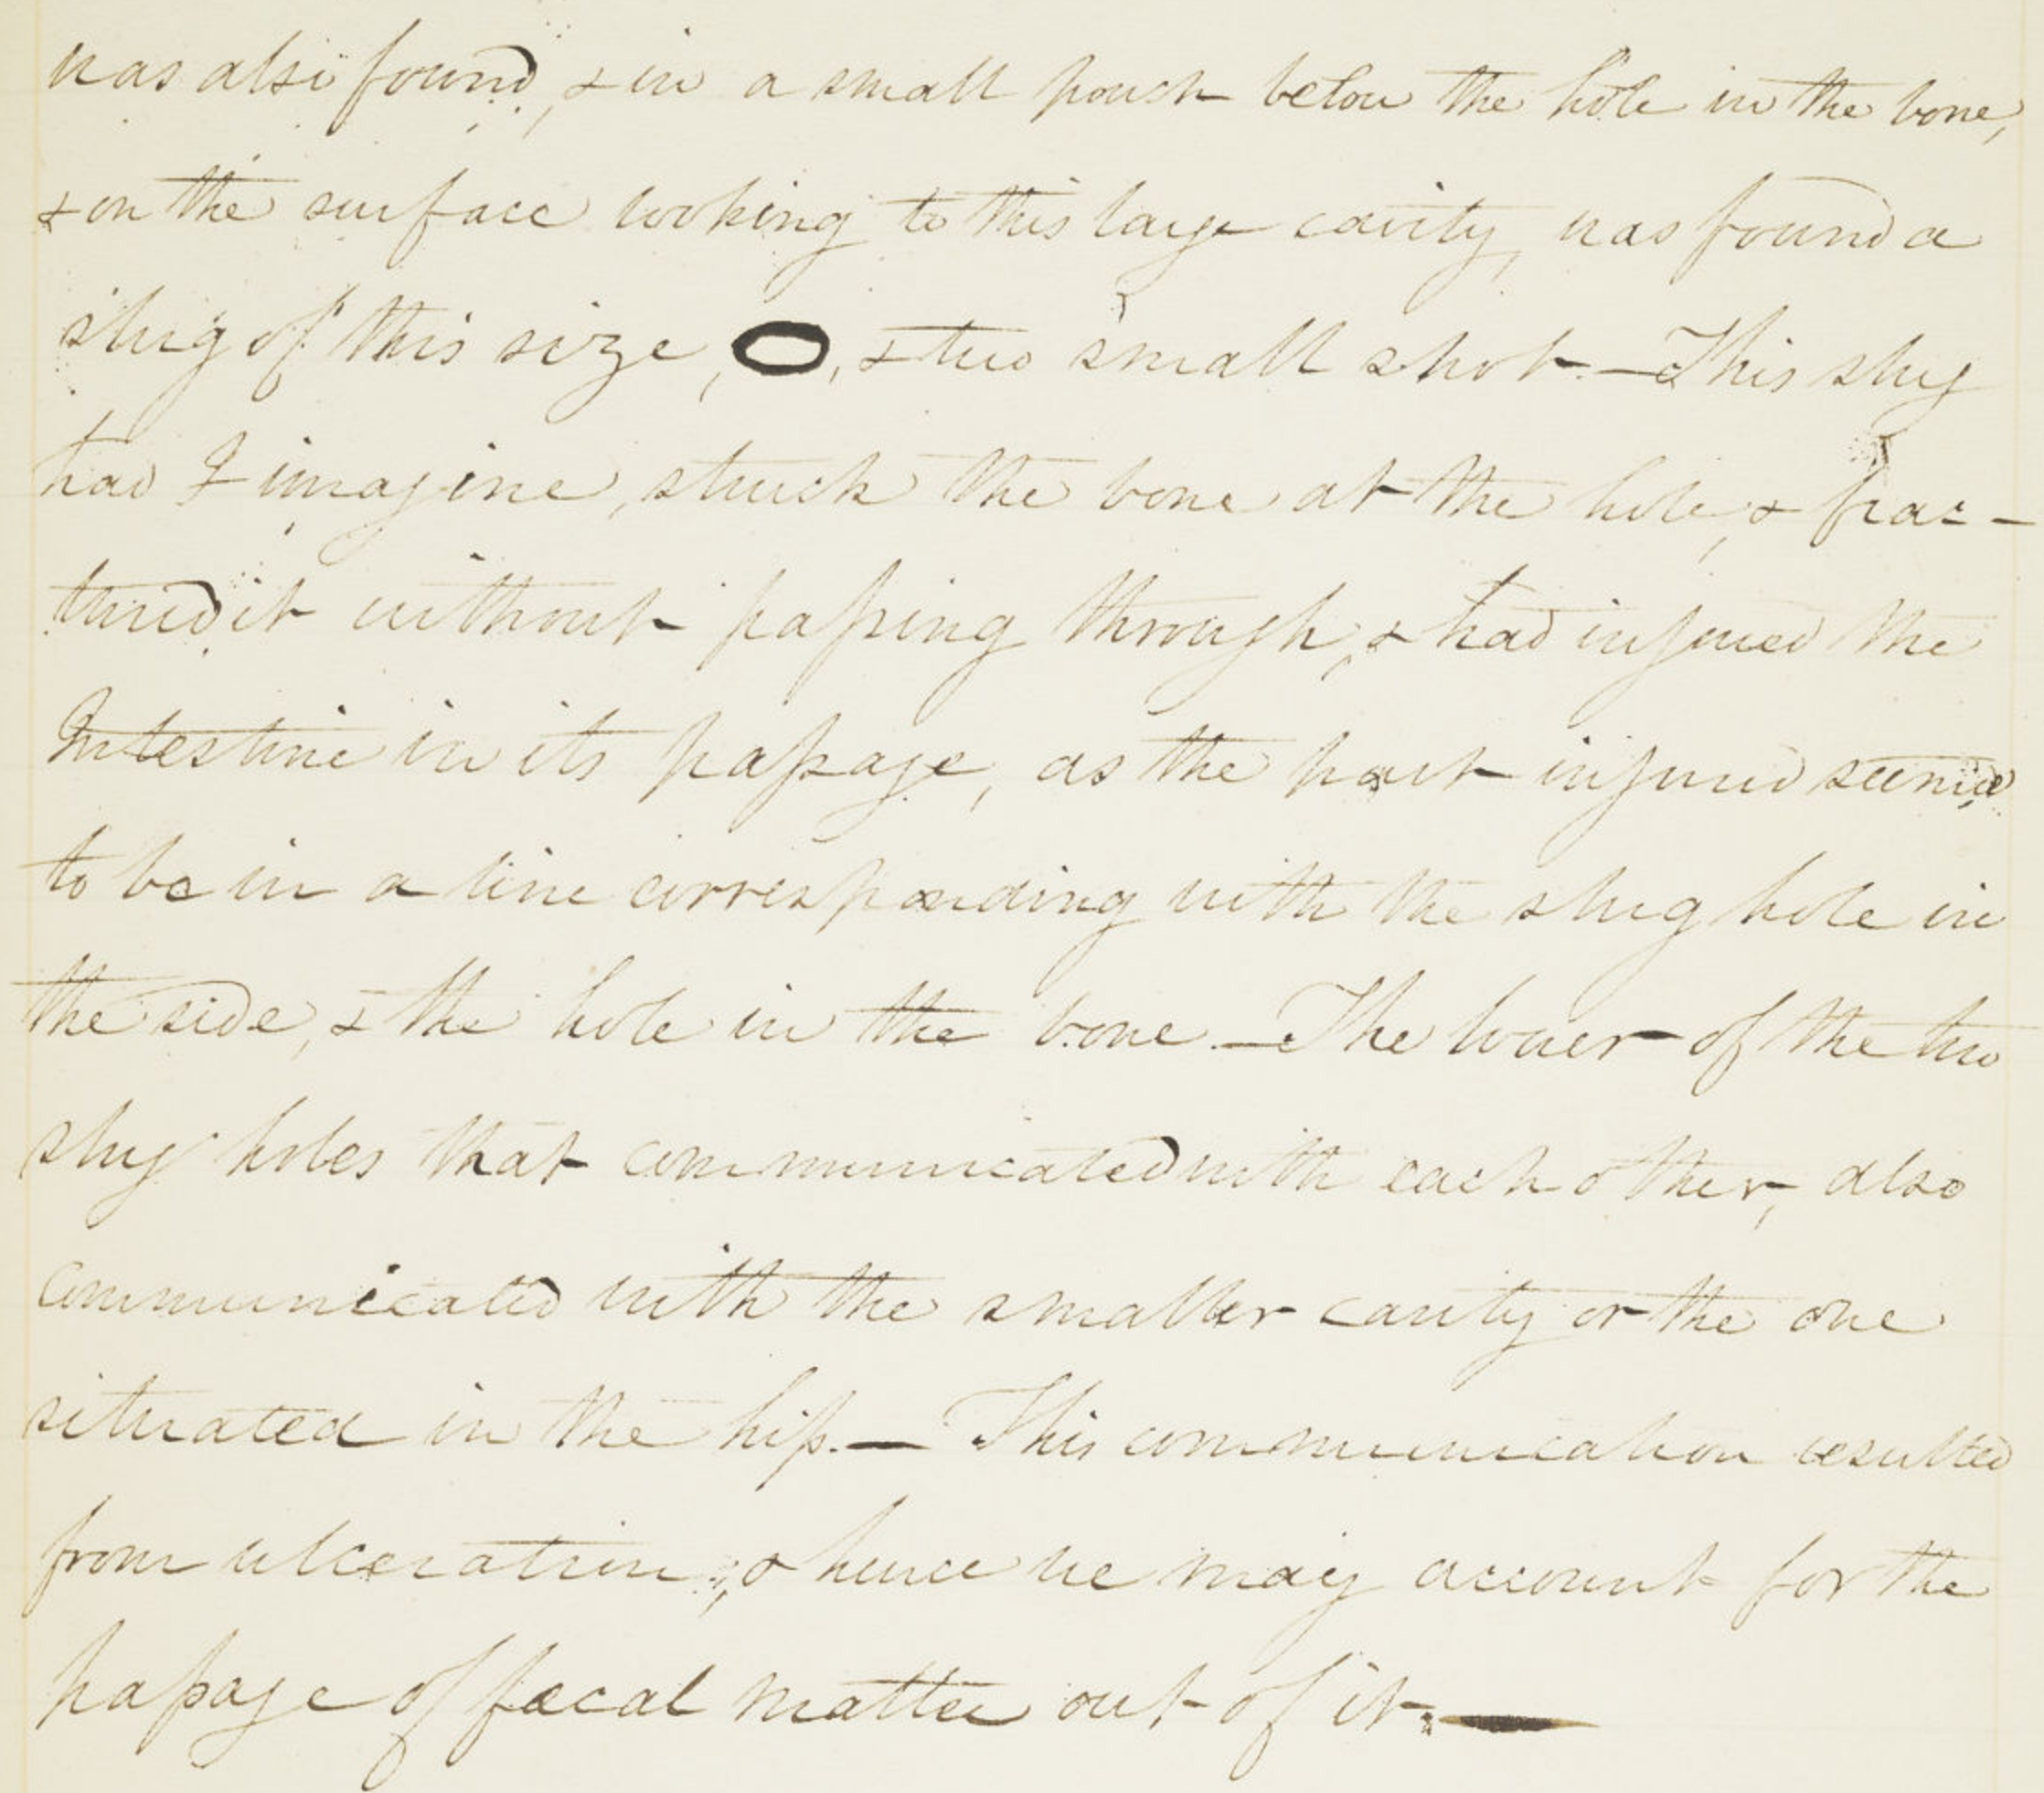 was also found, & in a small pouch below the hole in the bone,
& on the surface looking to this large cavity, was found a
slug of this size, O, & two small shot. — This slug
had I imagine, struck the bone at the hole, & frac-
tured it without paſsing through, & had injured the
Intestine in its paſsage, as the part injured seemed
to be in a line corresponding with the slug hole in
the side, & the hole in the bone. — The lower of the two
slug holes that communicated with each other, also
communicated with the smaller cavity or the one
situated in the hip. — This communication resulted
from ulceration; & hence we may account for the
paſsage of fæcal matter out of it. —